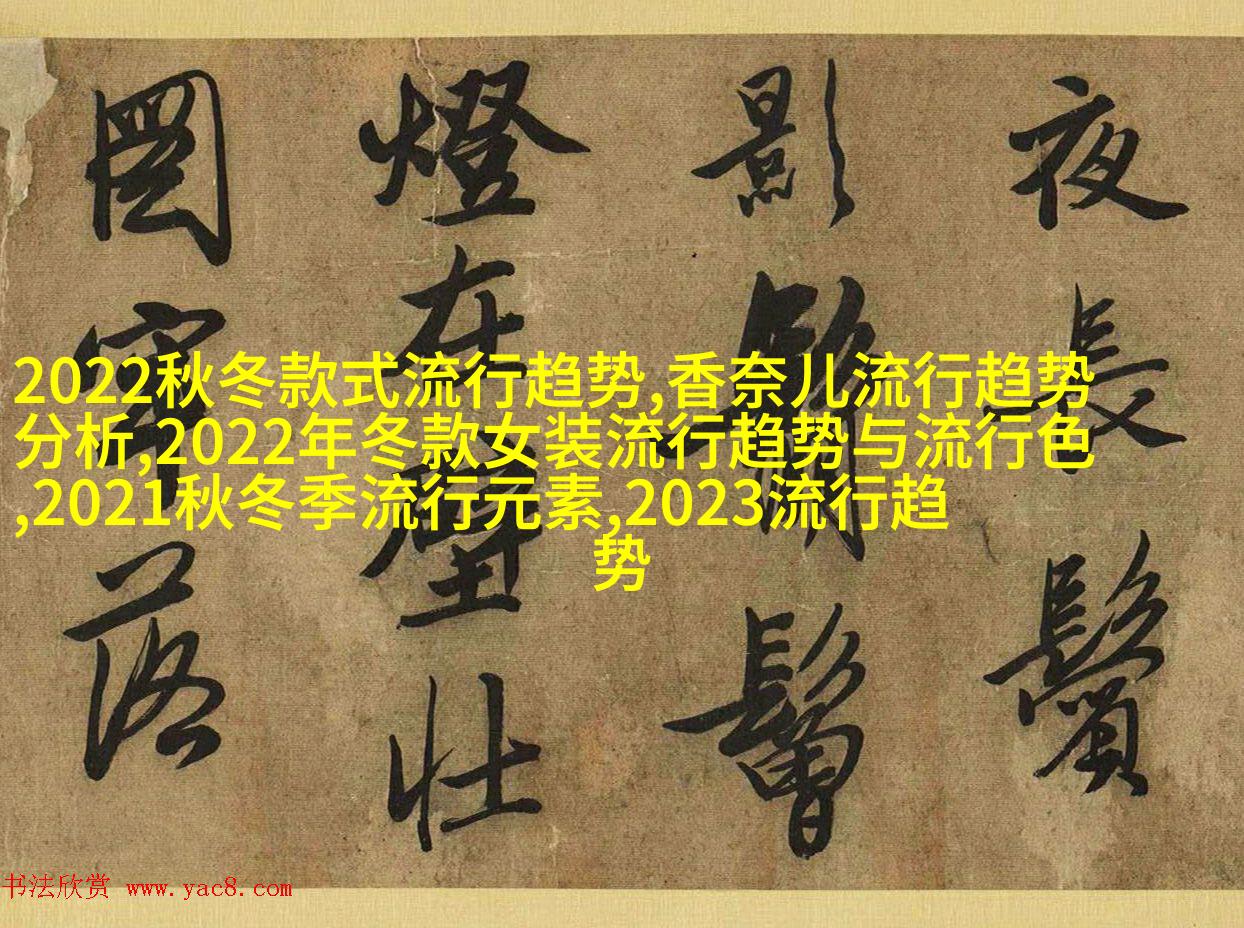 夜長鬢
影鬅鬙
燈在壁壯
圖牢落
2022秋冬款式流行趋势,香奈儿流行趋势
分析,2022年冬款女装流行趋势与流行色
,2021秋冬季流行元素,2023流行趋
势
书法欣赏 www.yac8.com